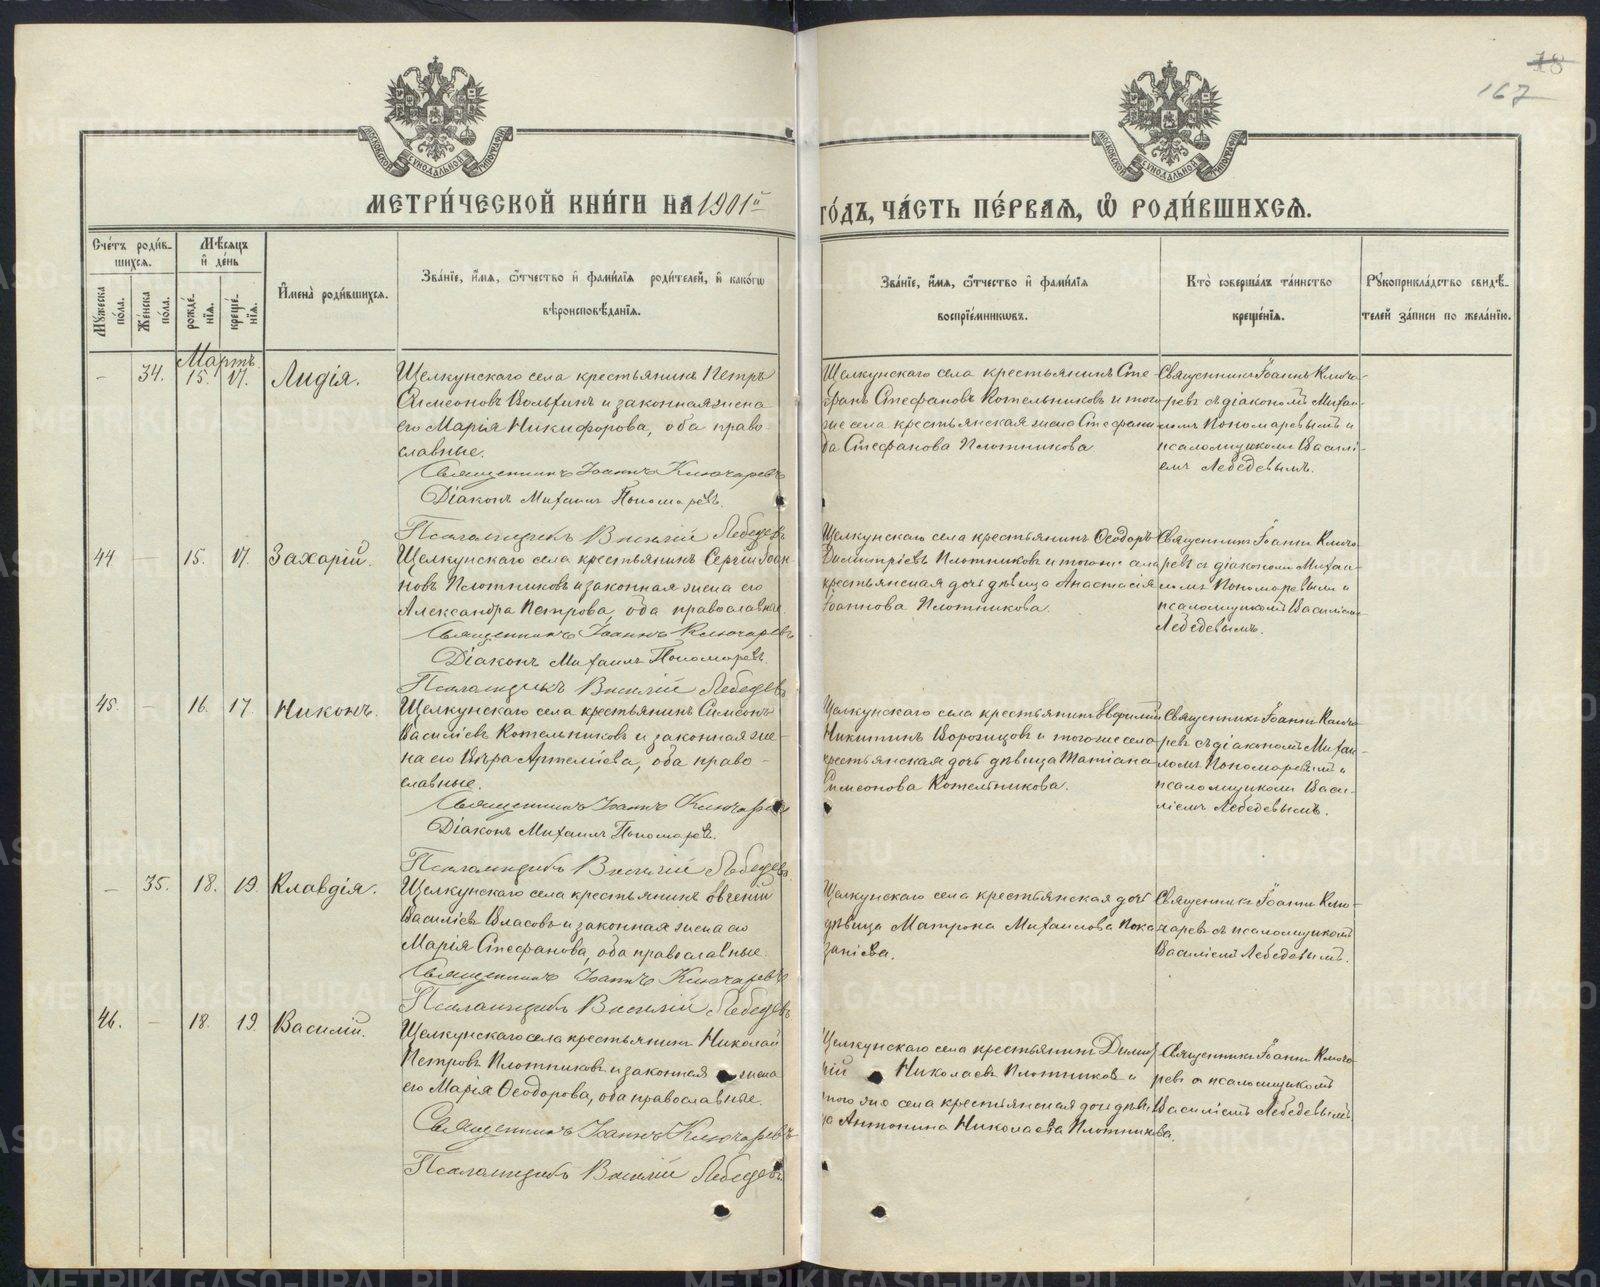 18
167
МЕТРИ́ЧЕСКОЙ КНИ́ГИ НА 1901й
ГО́ДЪ, ЧА́СТЬ ПЕ́РВАЯ, Ѡ РОДИ́ВШИХСЯ.
Сче́тъ роди́в-
шихся.
Мѣ́сяцъ
и де́нь
Му́жеска
по́ла.
Же́нска
по́ла.
рожде́-
нія.
креще́-
нія.
Имена̀ роди́вшихся.
Зва́ніе, и́мя, ѻ́тчество и фами́лія роди́телей, и како́гѡ
вѣроисповѣ́данія.
Зва́ніе, и́мя, ѻ́тчество и фами́лія
воспріе́мниковъ.
Кто̀ соверша́лъ та́инство
креще́нія.
Рукоприкла́дство свидѣ́-
телей за́писи по жела́нію.
Мартъ
- 34. 15. 17. Лидія.
Щелкунскаго села крестьянинъ Петръ
Симеоновъ Вольхинъ и законная жена
его Марія Никифорова, оба право-
славные.
Священникъ Іоаннъ Ключаревъ
Діаконъ Михаилъ Пономаревъ.
Псаломщикъ Василій Лебедевъ
Щелкунскаго села крестьянинъ Сте-
фанъ Стефановъ Котельниковъ и того
же села крестьянская жена Стефани-
да Стефанова Плотникова
Священникъ Іоаннъ Ключа-
ревъ съ діакономъ Михаи-
ломъ Пономаревымъ и
псаломщикомъ Василі-
емъ Лебедевымъ.
44 - 15. 17. Захарій.
Щелкунскаго села крестьянинъ Сергій Іоан-
новъ Плотниковъ и законная жена его
Александра Петрова, оба православные.
Священникъ Іоаннъ Ключаревъ
Діаконъ Михаилъ Пономаревъ
Псаломщикъ Василій Лебедевъ
Щелкунскаго села крестьянинъ Ѳеодоръ
Димитріевъ Плотниковъ и того же села
крестьянская дочь дѣвица Анастасія
Іоаннова Плотникова.
Священникъ Іоаннъ Ключа-
ревъ съ діакономъ Михаи-
ломъ Пономаревымъ и
псаломщикомъ Василіемъ
Лебедевымъ.
45. - 16. 17. Никонъ.
Щелкунскаго села крестьянинъ Симеонъ
Василіевъ Котельниковъ и законная же-
на его Вѣра Артеміева, оба право-
славные.
Священникъ Іоаннъ Ключаревъ
Діаконъ Михаилъ Пономаревъ.
Псаломщикъ Василій Лебедевъ
Щелкунскаго села крестьянинъ Евфимій
Никитинъ и того же села
крестьянская дочь дѣвица Татіана
Симеонова Котельникова.
Священникъ Іоаннъ Ключа-
ревъ съ діакономъ Михаи-
ломъ Пономаревымъ и
псаломщикомъ Васи-
ліемъ Лебедевымъ.
- 35. 18. 19. Клавдія.
Щелкунскаго села крестьянинъ Евгеній
Василіевъ Власовъ и законная жена его
Марія Стефанова, оба православные.
Священникъ Іоаннъ Ключаревъ
Псаломщикъ Василій Лебедевъ
Щелкунскаго села крестьянская дочь
дѣвица Матрона Михаилова
Священникъ Іоаннъ Клю-
чаревъ съ псаломщикомъ
Василіемъ Лебедевымъ.
46. - 18. 19. Василій.
Щелкунскаго села крестьянинъ Николай
Петровъ Плотниковъ и законная жена
его Марія Ѳеодорова, оба православные.
Священникъ Іоаннъ Ключаревъ
Псаломщикъ Василій Лебедевъ
Щелкунскаго села крестьянинъ Димит-
рій Николаевъ Плотниковъ и
того же села крестьянская дочь дѣви-
ца Антонина Николаева Плотникова.
Священникъ Іоаннъ Ключа-
ревъ съ псаломщикомъ
Василіемъ Лебедевымъ
METRIKI.GASO-URAL.RU